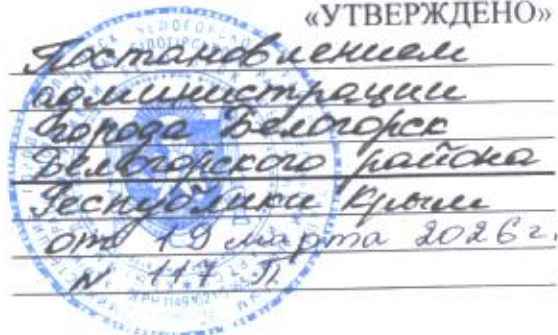 «УТВЕРЖДЕНО»
Постановлением
администрации
города Белогорск
Белогорского района
Республики Крым
от 19 марта 2026г.
N 117 П